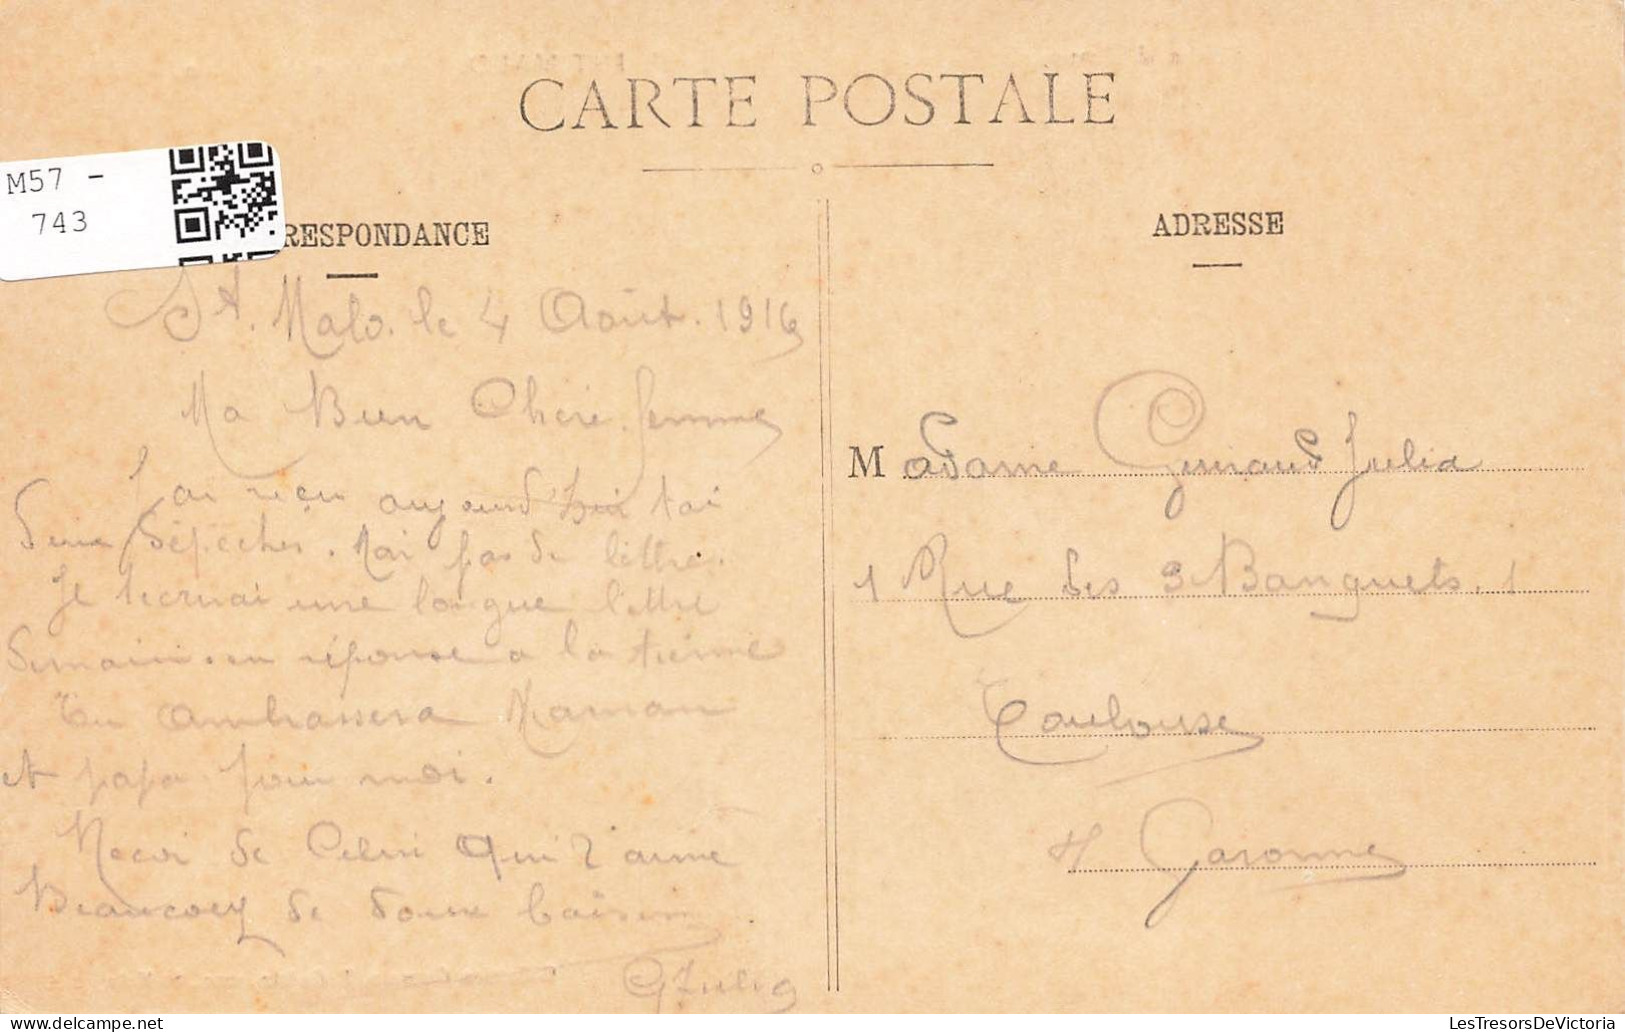 CARTE POSTALE
M57 -
743
RESPONDANCE
ADRESSE
St. Malo. le 4 Août. 1916
Ma Bien Chere femme
J'ai reçu aujourd'hui tai
deux dépêches. Mai pas de lettre.
Je t'ecrirai une longue lettre
demain. en réponse a la tienne
Tu ambrassera Maman
et papa pour moi.
Recoi de Celui qui t'aime
Beaucoup de doux baisers
Madame Julia
1 Rue des 3 Banquets. 1
Toulouse
H Garonne
LesTresorsDeVictoria